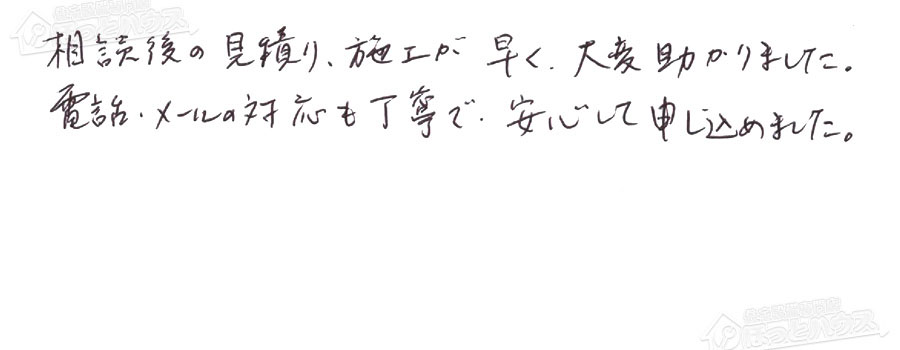 相談後の見積り、施工が早く、大変助かりました。
電話・メールの対応も丁寧で、安心して申し込めました。
ほっとハウス